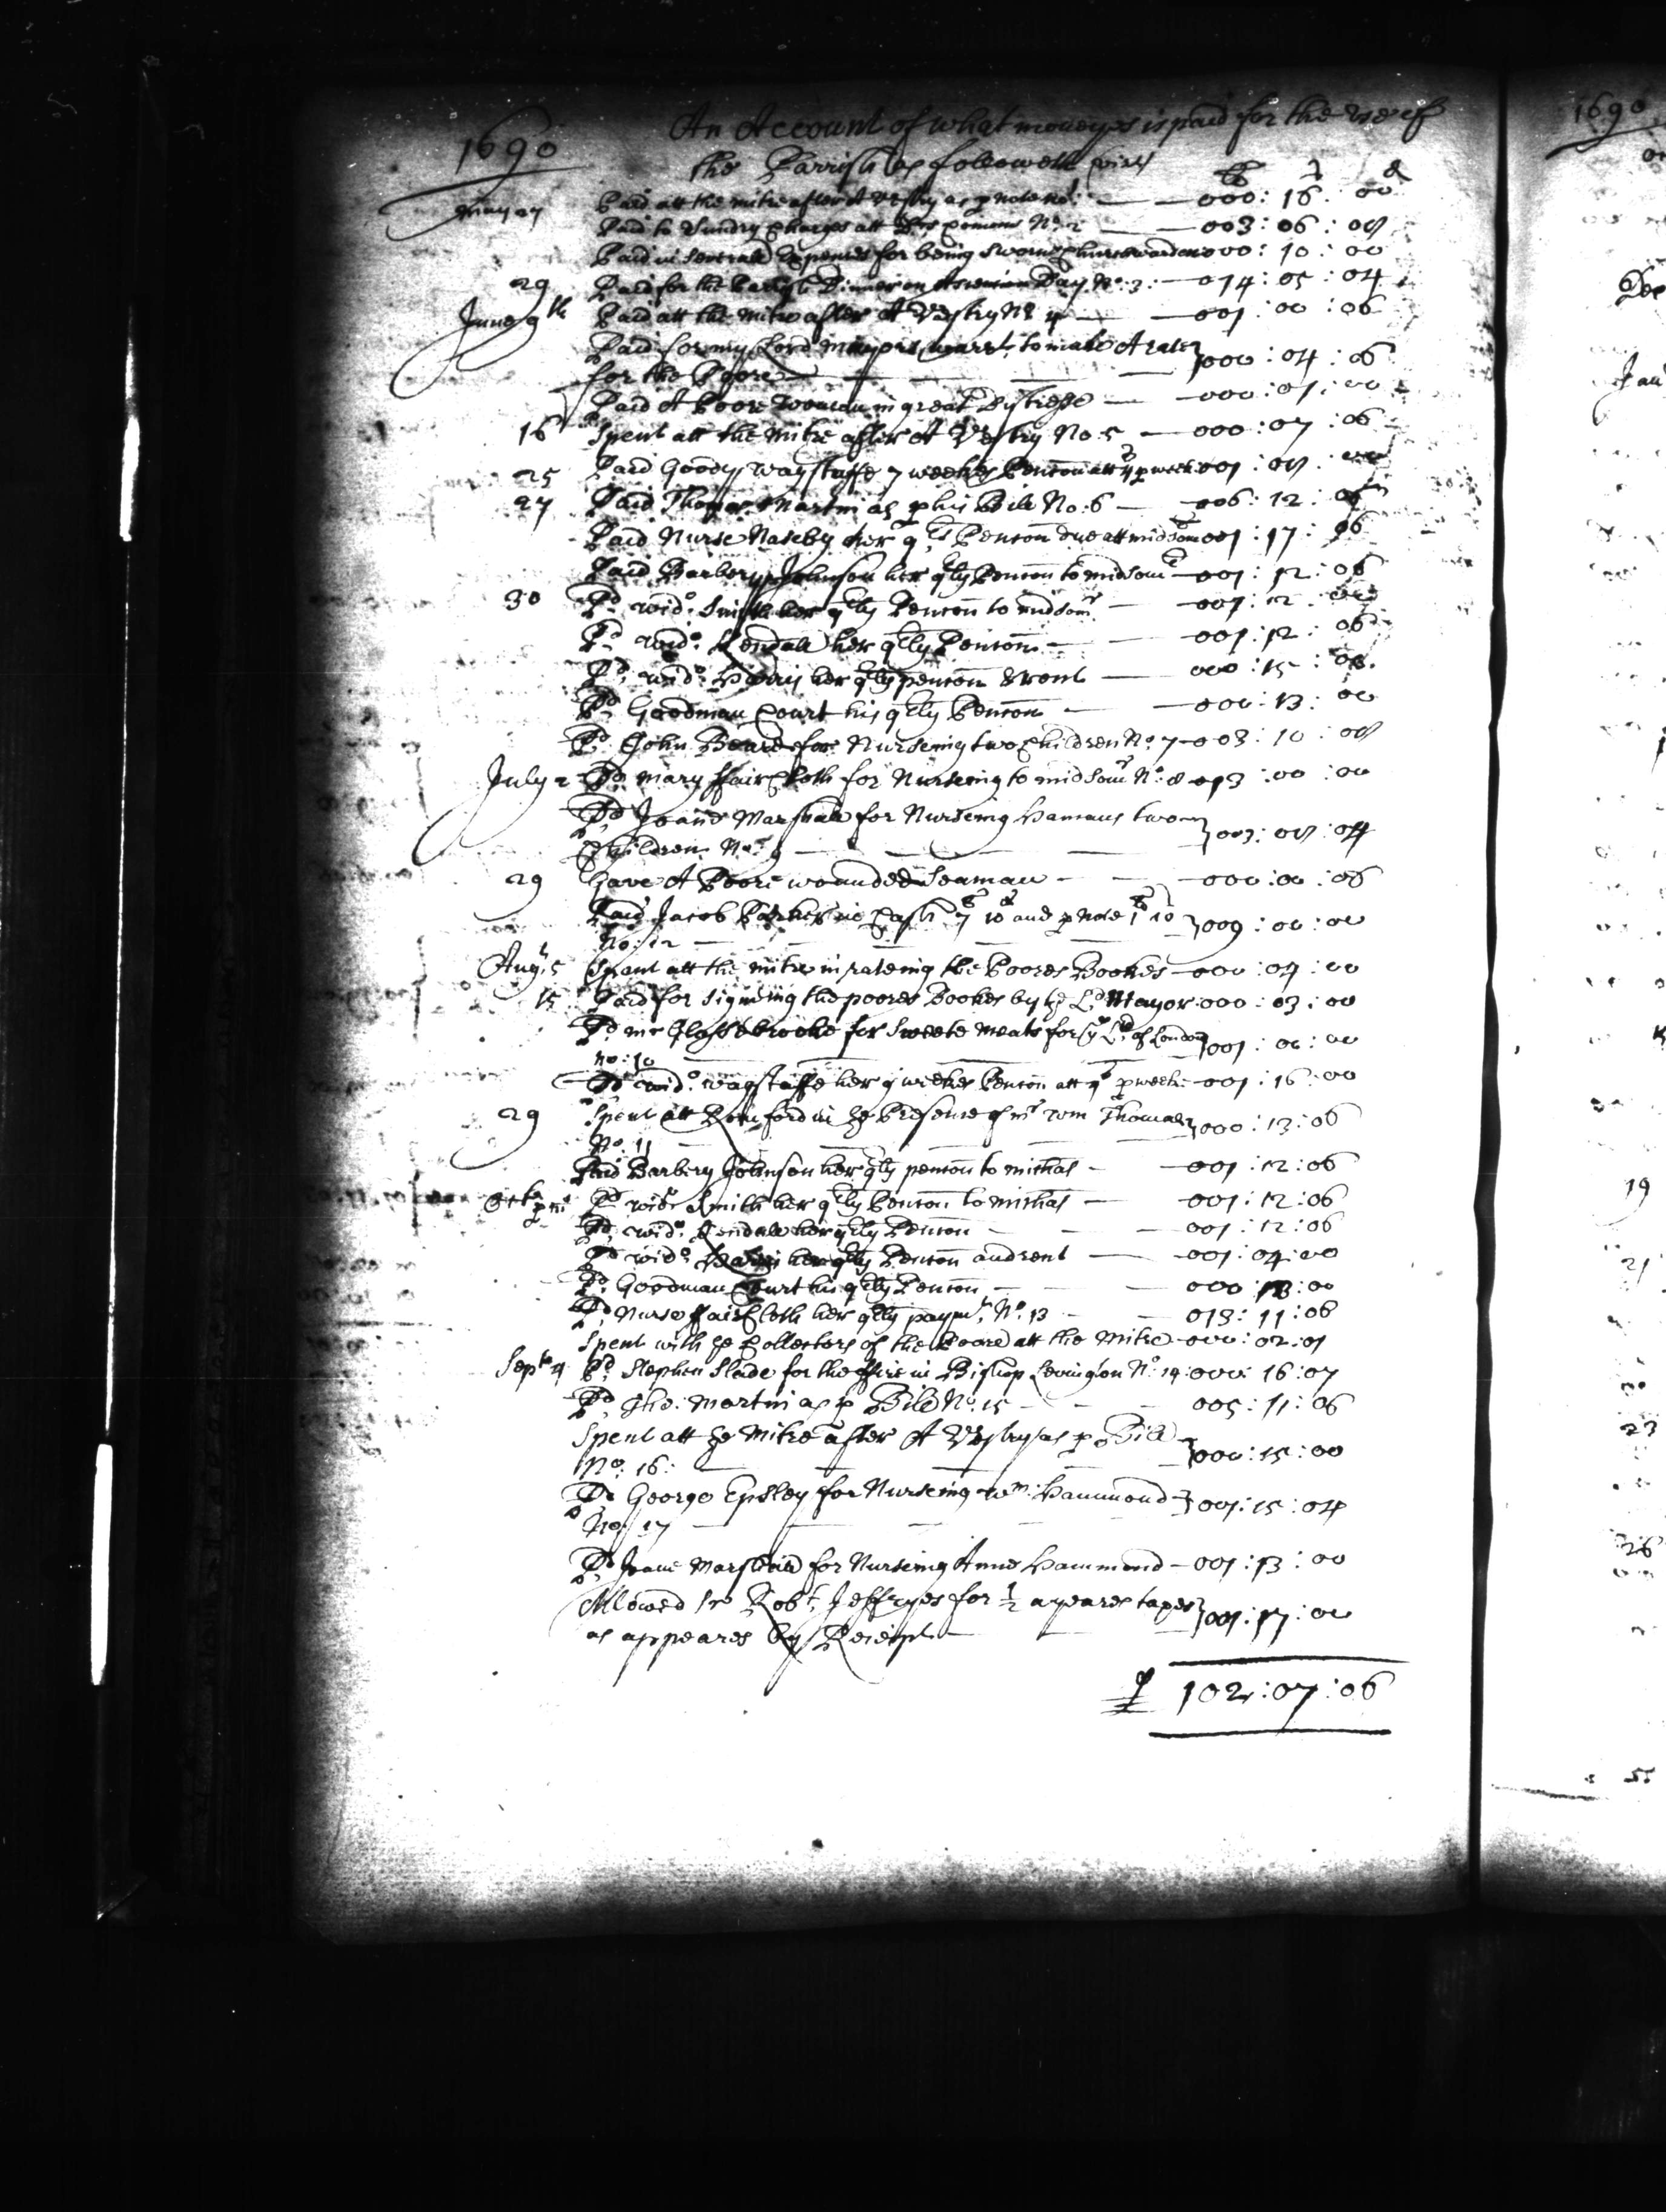 1690
An Account of what moneyes is paid for the use of
the Parrish as followeth (viz)
li s d
May 27 Paid att the mitre after A Vestry as p note no: 1 — 000 : 16 : 00
Paid to Sundry Charges att No: 2 — 003 : 06 : 08
Paid in severall Expences for being sworne Churchwarden 000 : 10 : 00
29 Paid for the Parish Dinner on Ascencion Day No: 3 — 014 : 05 : 04
June 9th Paid att the Mitre after A Vestry No 4 — 001 : 00 : 06
Paid for my Lord Mayors warrt. to make A rate
for the Poore — 000 : 04 : 06
Paid A Poore Woman in great Distresse — 000 : 01 : 00
16 Spent att the Mitre after A Vestry No: 5 — 000 : 07 : 06
25 Paid Goody Wagstaffe 7 weekes Pencon att 4s p week 001 : 08 : 00
27 Paid Thomas Martin as p his Bill No: 6 — 006 : 12 : 06
Paid Nurse Naseby her qts Pencon due att midsomr 001 : 17 : 06
Paid Barbery Johnson her qtly Pencon to midsomr — 001 : 12 : 06
30 Pd wido: Smith her qtly Pencon to midsomr — 001 : 12 : 06
Pd wido: Kendall her qtly Pencon — 001 : 12 : 06
Pd wido: her qtly pencon & rent — 000 : 15 : 06
Pd Goodman Court his qtly Pencon — 000 : 13 : 00
Pd John Beard for Nurseing two Children No: 7 — 003 : 10 : 08
July 2 Pd Mary ffaircloth for Nurseing to midsomr No: 8 — 013 : 00 : 00
Pd Joane Marshall for Nurseing Hamans two
Children No: 9 — 003 : 08 : 04
29 Gave A Poore wounded Seaman — 000 : 00 : 06
Paid Jacob Parker in Cash 7 10 and p note 1 10
No: 12 — 009 : 00 : 00
Augt. 5 Spent att the mitre in rateing the Poores Bookes — 000 : 04 : 00
15 Paid for signing the poores Bookes by ye Ld Mayor 000 : 03 : 00
Pd mr Glassebrooke for Sweete meats for ye Ld of London
no: 10 — 001 : 00 : 00
Pd wido: wagstaffe her 9 weekes Pencon att 4s p week — 001 : 16 : 00
29 Spent att Rumford in ye Presense of mr Wm Thomas
No: 11 — 000 : 13 : 06
Paid Barbery Johnson her qtly pencon to michas — 001 : 12 : 06
Octr pmo Pd wido Smith her qtly Pencon to michas — 001 : 12 : 06
Pd wido: Kendall her qtly Pencon — 001 : 12 : 06
Pd wido: her qtly Pencon and rent — 001 : 04 : 00
Pd Goodman Court his qtly Pencon — 000 : 13 : 00
Pd Nurse ffaircloth her qtly paymt. No: 13 — 013 : 11 : 06
Spent with ye Collectors of the Poore att the Mitre — 000 : 02 : 01
Septr 4 Pd Stephen Slade for the ffire in Bishop Levington No: 14 : 000 : 16 : 07
Pd Tho: Martin as p Bill No: 15 — 005 : 11 : 06
Spent att ye Mitre after A Vestry as p Bill
No: 16: — 000 : 15 : 00
Pd George Epsley for Nurseing wm: Hammond
No: 17 — 001 : 15 : 04
Pd Joane Marshall for Nurseing Anne Hammond — 001 : 13 : 00
Allowed Sr Robt. Jeffryes for 1/2 a yeares taxes
as appeares by Receipt — 001 : 17 : 00
102 : 07 : 06
1690
19
21
23
26